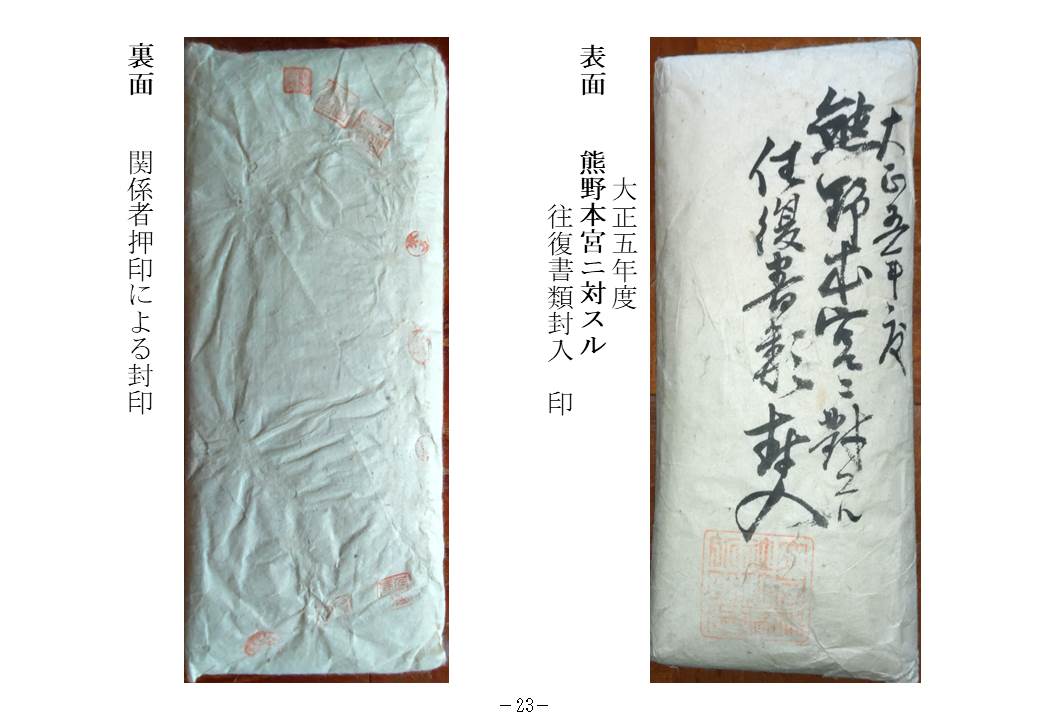 大正五年度
熊野本宮ニ對スル
往復書類封入
表面 大正五年度
熊野本宮ニ対スル
往復書類封入 印
裏面 関係者押印による封印
-23-